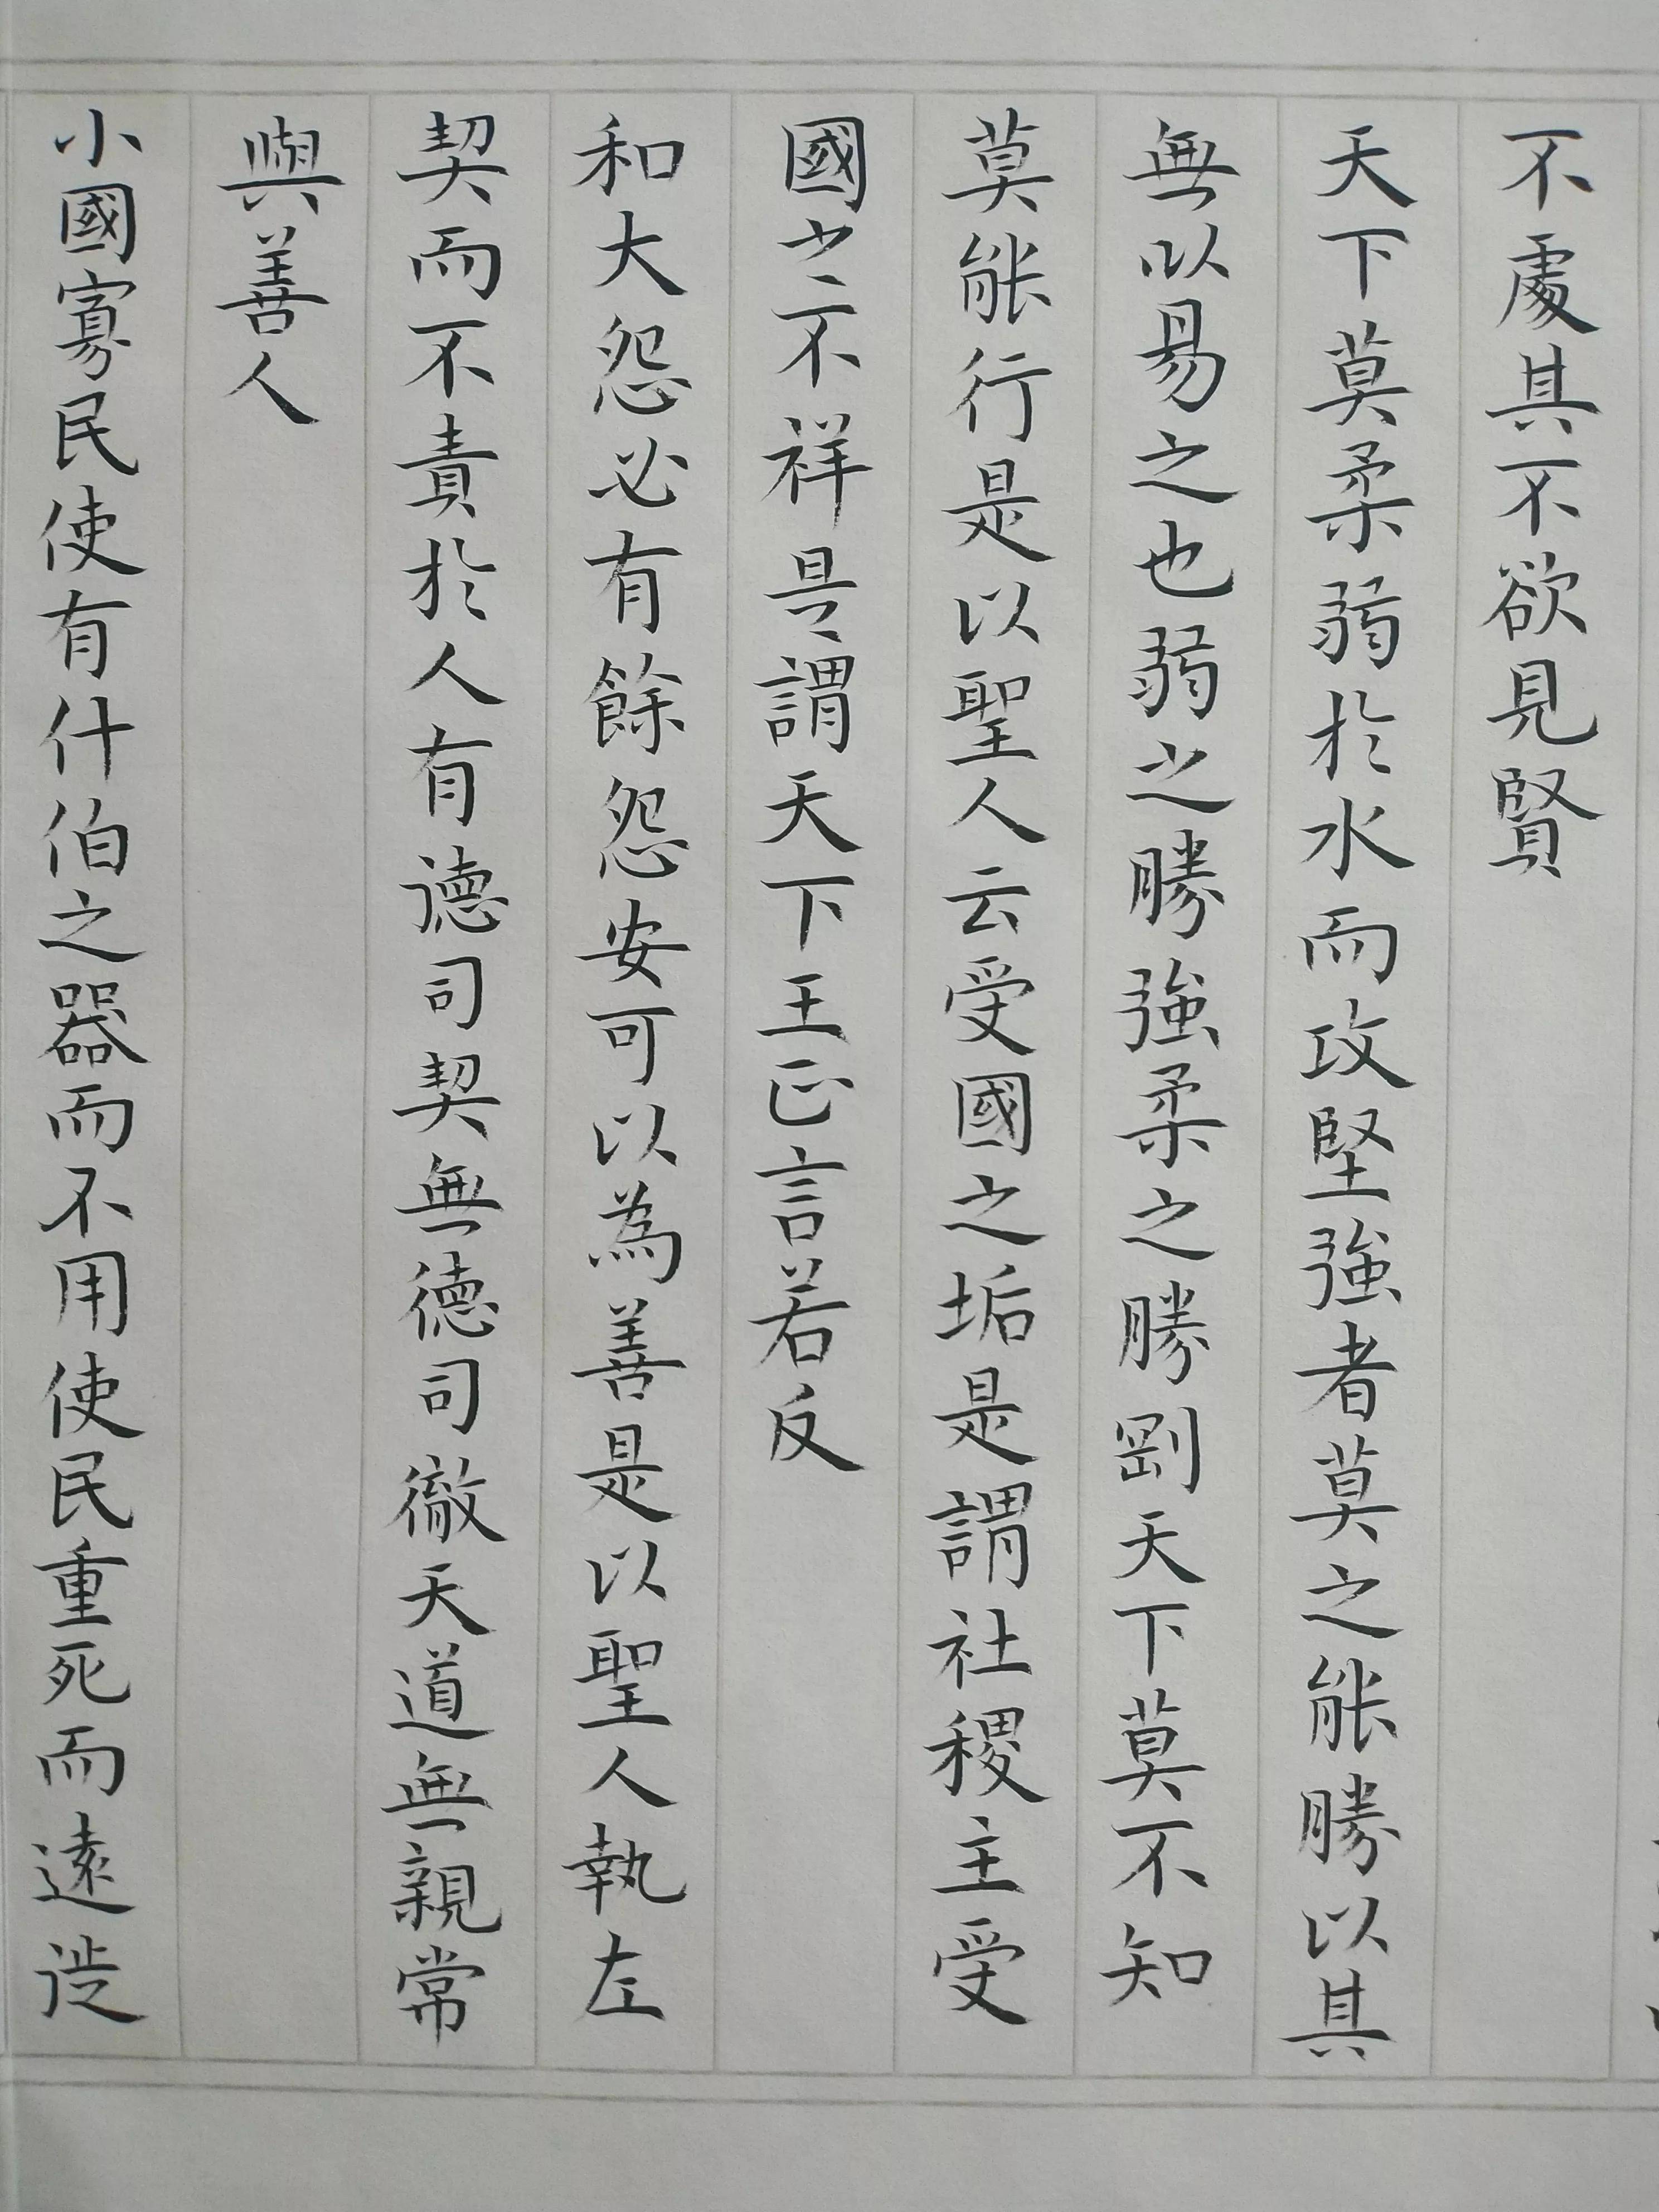 不處其不欲見賢
天下莫柔弱於水而攻堅強者莫之能勝以其
無以易之也弱之勝強柔之勝剛天下莫不知
莫能行是以聖人云受國之垢是謂社稷主受
國之不祥是謂天下王正言若反
和大怨必有餘怨安可以為善是以聖人執左
契而不責於人有德司契無德司徹天道無親常
與善人
小國寡民使有什伯之器而不用使民重死而遠徙